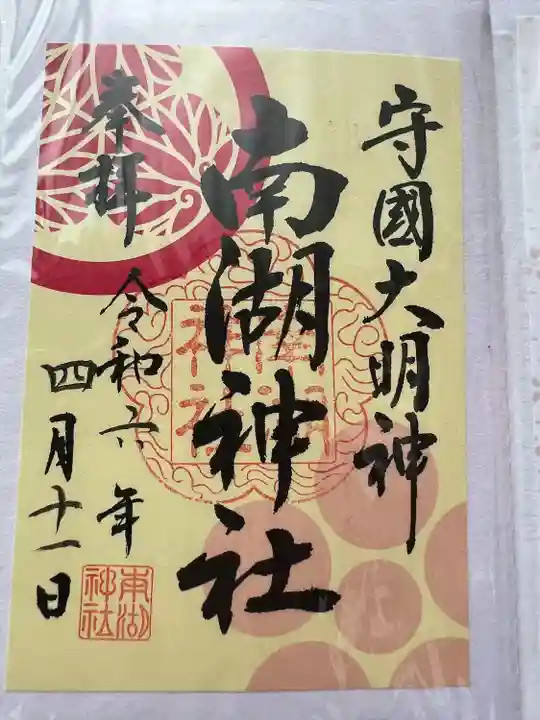 守國大明神
南湖神社
奉拝
令和六年
四月十一日
南湖神社
南湖神社